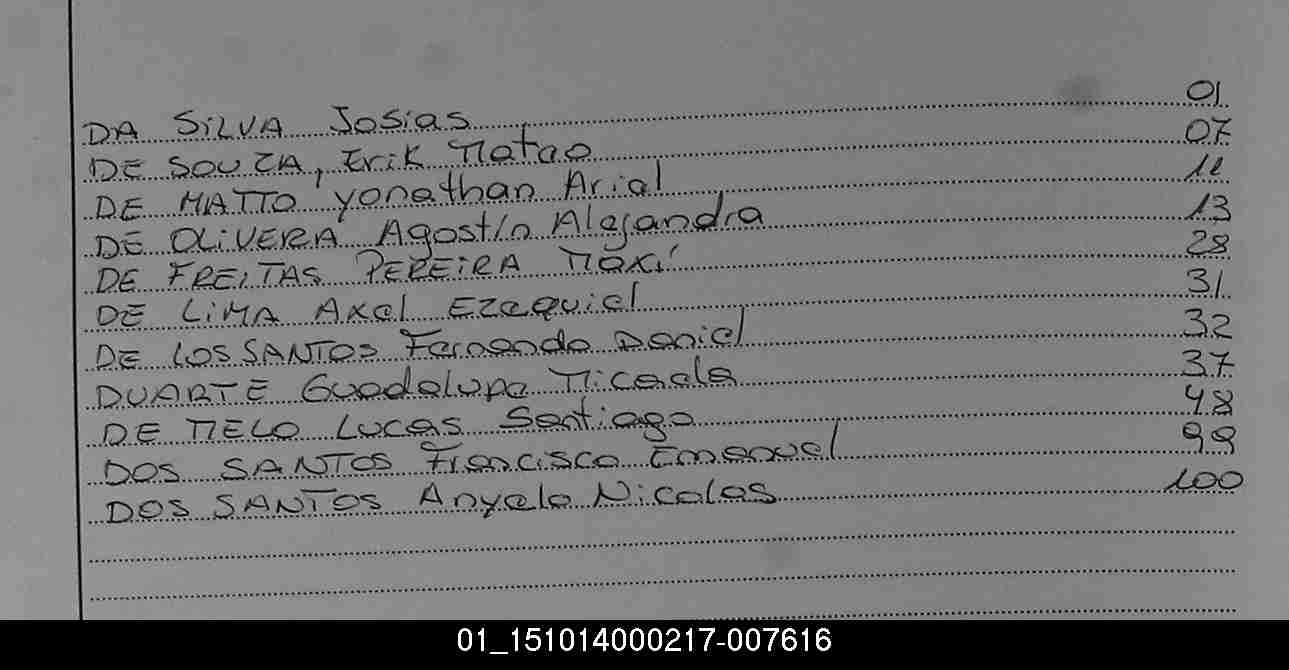 DA SiLVA Josias 01
DE SOUZA, Erik Matao 07
DE MATTO Yonathan Arial 12
DE OLiVERA Agostin Alejandra 13
DE FREITAS PEREiRA Maxi 28
DE LiMA Axel Ezequiel 31
DE LOS SANTOS Fernando Daniel 32
DUARTE Guadalupe Micaela 37
DE MELO Lucas Santiago 48
DOS SANTOS Francisco Emanuel 99
DOS SANTOS Anyelo Nicolas 100
01_151014000217-007616